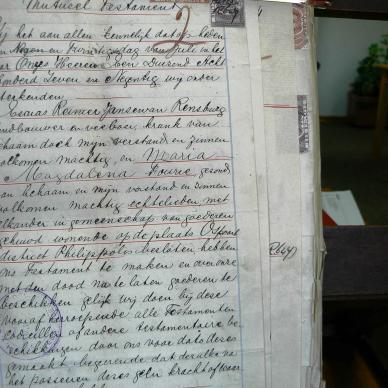 Mutueel Testament
Zij het aan allen kennelijk dat op heden
den Negen en Twintigsdag van Julie in het
Jaar Onzes Heeren Een Duizend Acht
Honderd Zeven en Negentig wij onder
geteekenden
Esaias Reinier Janse van Rensburg
Landbouwer en veeboer, krank van
lichaam doch mijn verstand en zinnen
volkomen machtig, en Maria
Magdalena Fourie gezond
van lichaam en mijn verstand en zinnen
volkomen machtig echtelieden met
elkander in gemeenschap van goederen
gehuwd wonende op de plaats
district Philippolis besloten hebben
ons testament te maken en over onze
met den dood na te laten goederen te
beschikken gelijk wij doen bij deze
vooraf herroepende alle Testamenten
Codicillen of andere testamentaire be-
schikkingen door ons voor dato dezes
gemaakt begeerende dat dezelve na
het passeeren dezes geen kracht of waar